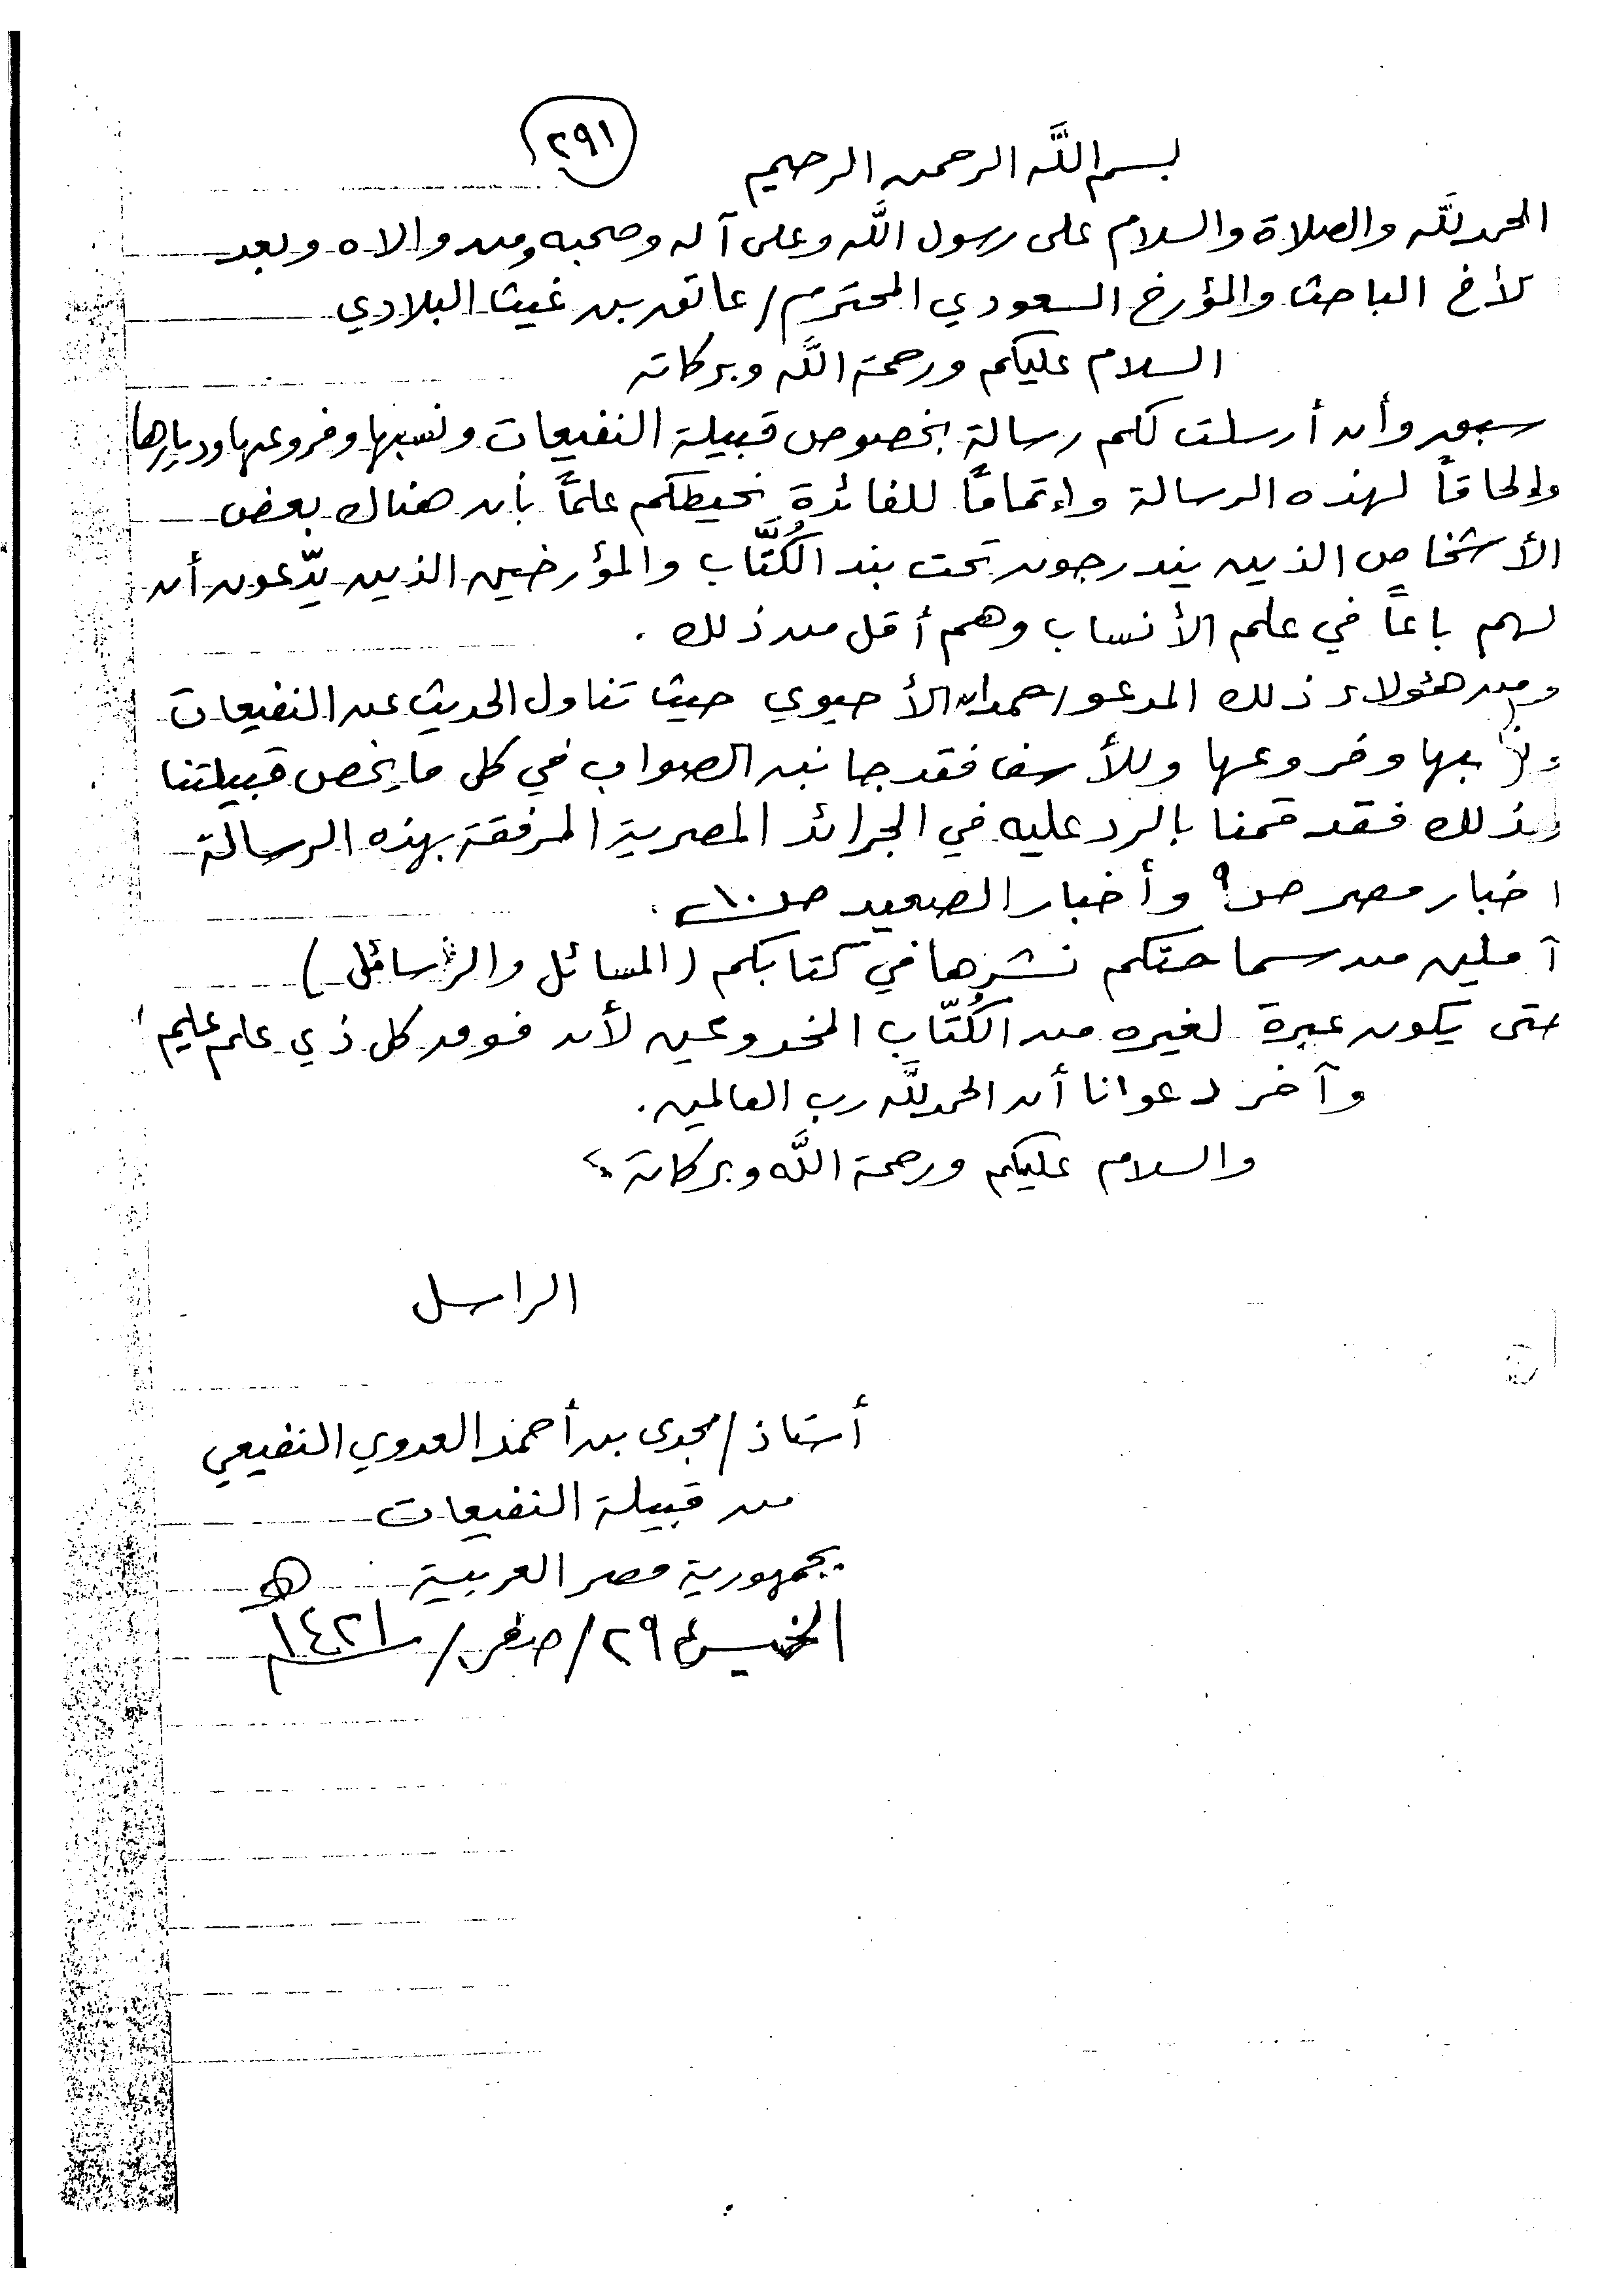 ٢٩١
بسم اللَّه الرحمن الرحيم
الحمد للَّه والصلاة والسلام على رسول اللَّه وعلى آله وصحبه ومن والاه وبعد
لأخ الباحث والمؤرخ السعودي المحترم / عاتق بن غيث البلادي
السلام عليكم ورحمة اللَّه وبركاته
سبق وأن أرسلت لكم رسالة بخصوص قبيلة النفيعات ونسبها وفروعها وديارها
وإلحاقاً لهذه الرسالة وإتماماً للفائدة نحيطكم علماً بأن هناك بعض
الأشخاص الذين يندرجون تحت بند الكُتَّاب والمؤرخين الذين يدّعون أن
لهم باعاً في علم الأنساب وهم أقل من ذلك .
ومن هئولاء ذلك المدعو / حمدان الأحيوي حيث تناول الحديث عن النفيعات
ونسبها وفروعها وللأسف فقد جانبه الصواب في كل ما يخص قبيلتنا
لذلك فقد قمنا بالرد عليه في الجرائد المصرية المرفقة بهذه الرسالة
اخبار مصر صـ٩ وأخبار الصعيد صـ١٠ .
آملين من سماحتكم نشرها في كتابكم (المسائل والرسائل)
حتى يكون عبرة لغيره من الكُتّاب المخدوعين لأن فوق كل ذي علم عليم
وآخر دعوانا أن الحمد للَّه رب العالمين .
والسلام عليكم ورحمة اللَّه وبركاته
الراسل
أستاذ / مجدى بن أحمد العدوي النفيعي
من قبيلة النفيعات
بجمهورية مصر العربية
الخميس ٢٩ / صفر / ١٤٢١ هـ